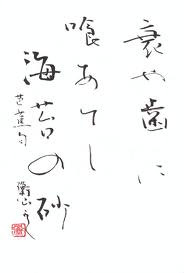 衰や歯に
喰あてし
海苔の砂
芭蕉句